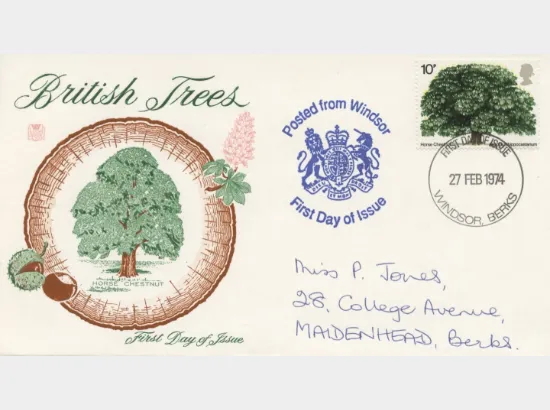 British Trees
HORSE CHESTNUT
First Day of Issue
Posted from Windsor
First Day of Issue
10P
Horse Chestnut
FIRST DAY OF ISSUE
27 FEB 1974
WINDSOR, BERKS
Miss P. Jones,
28, College Avenue,
MAIDENHEAD, Berks.